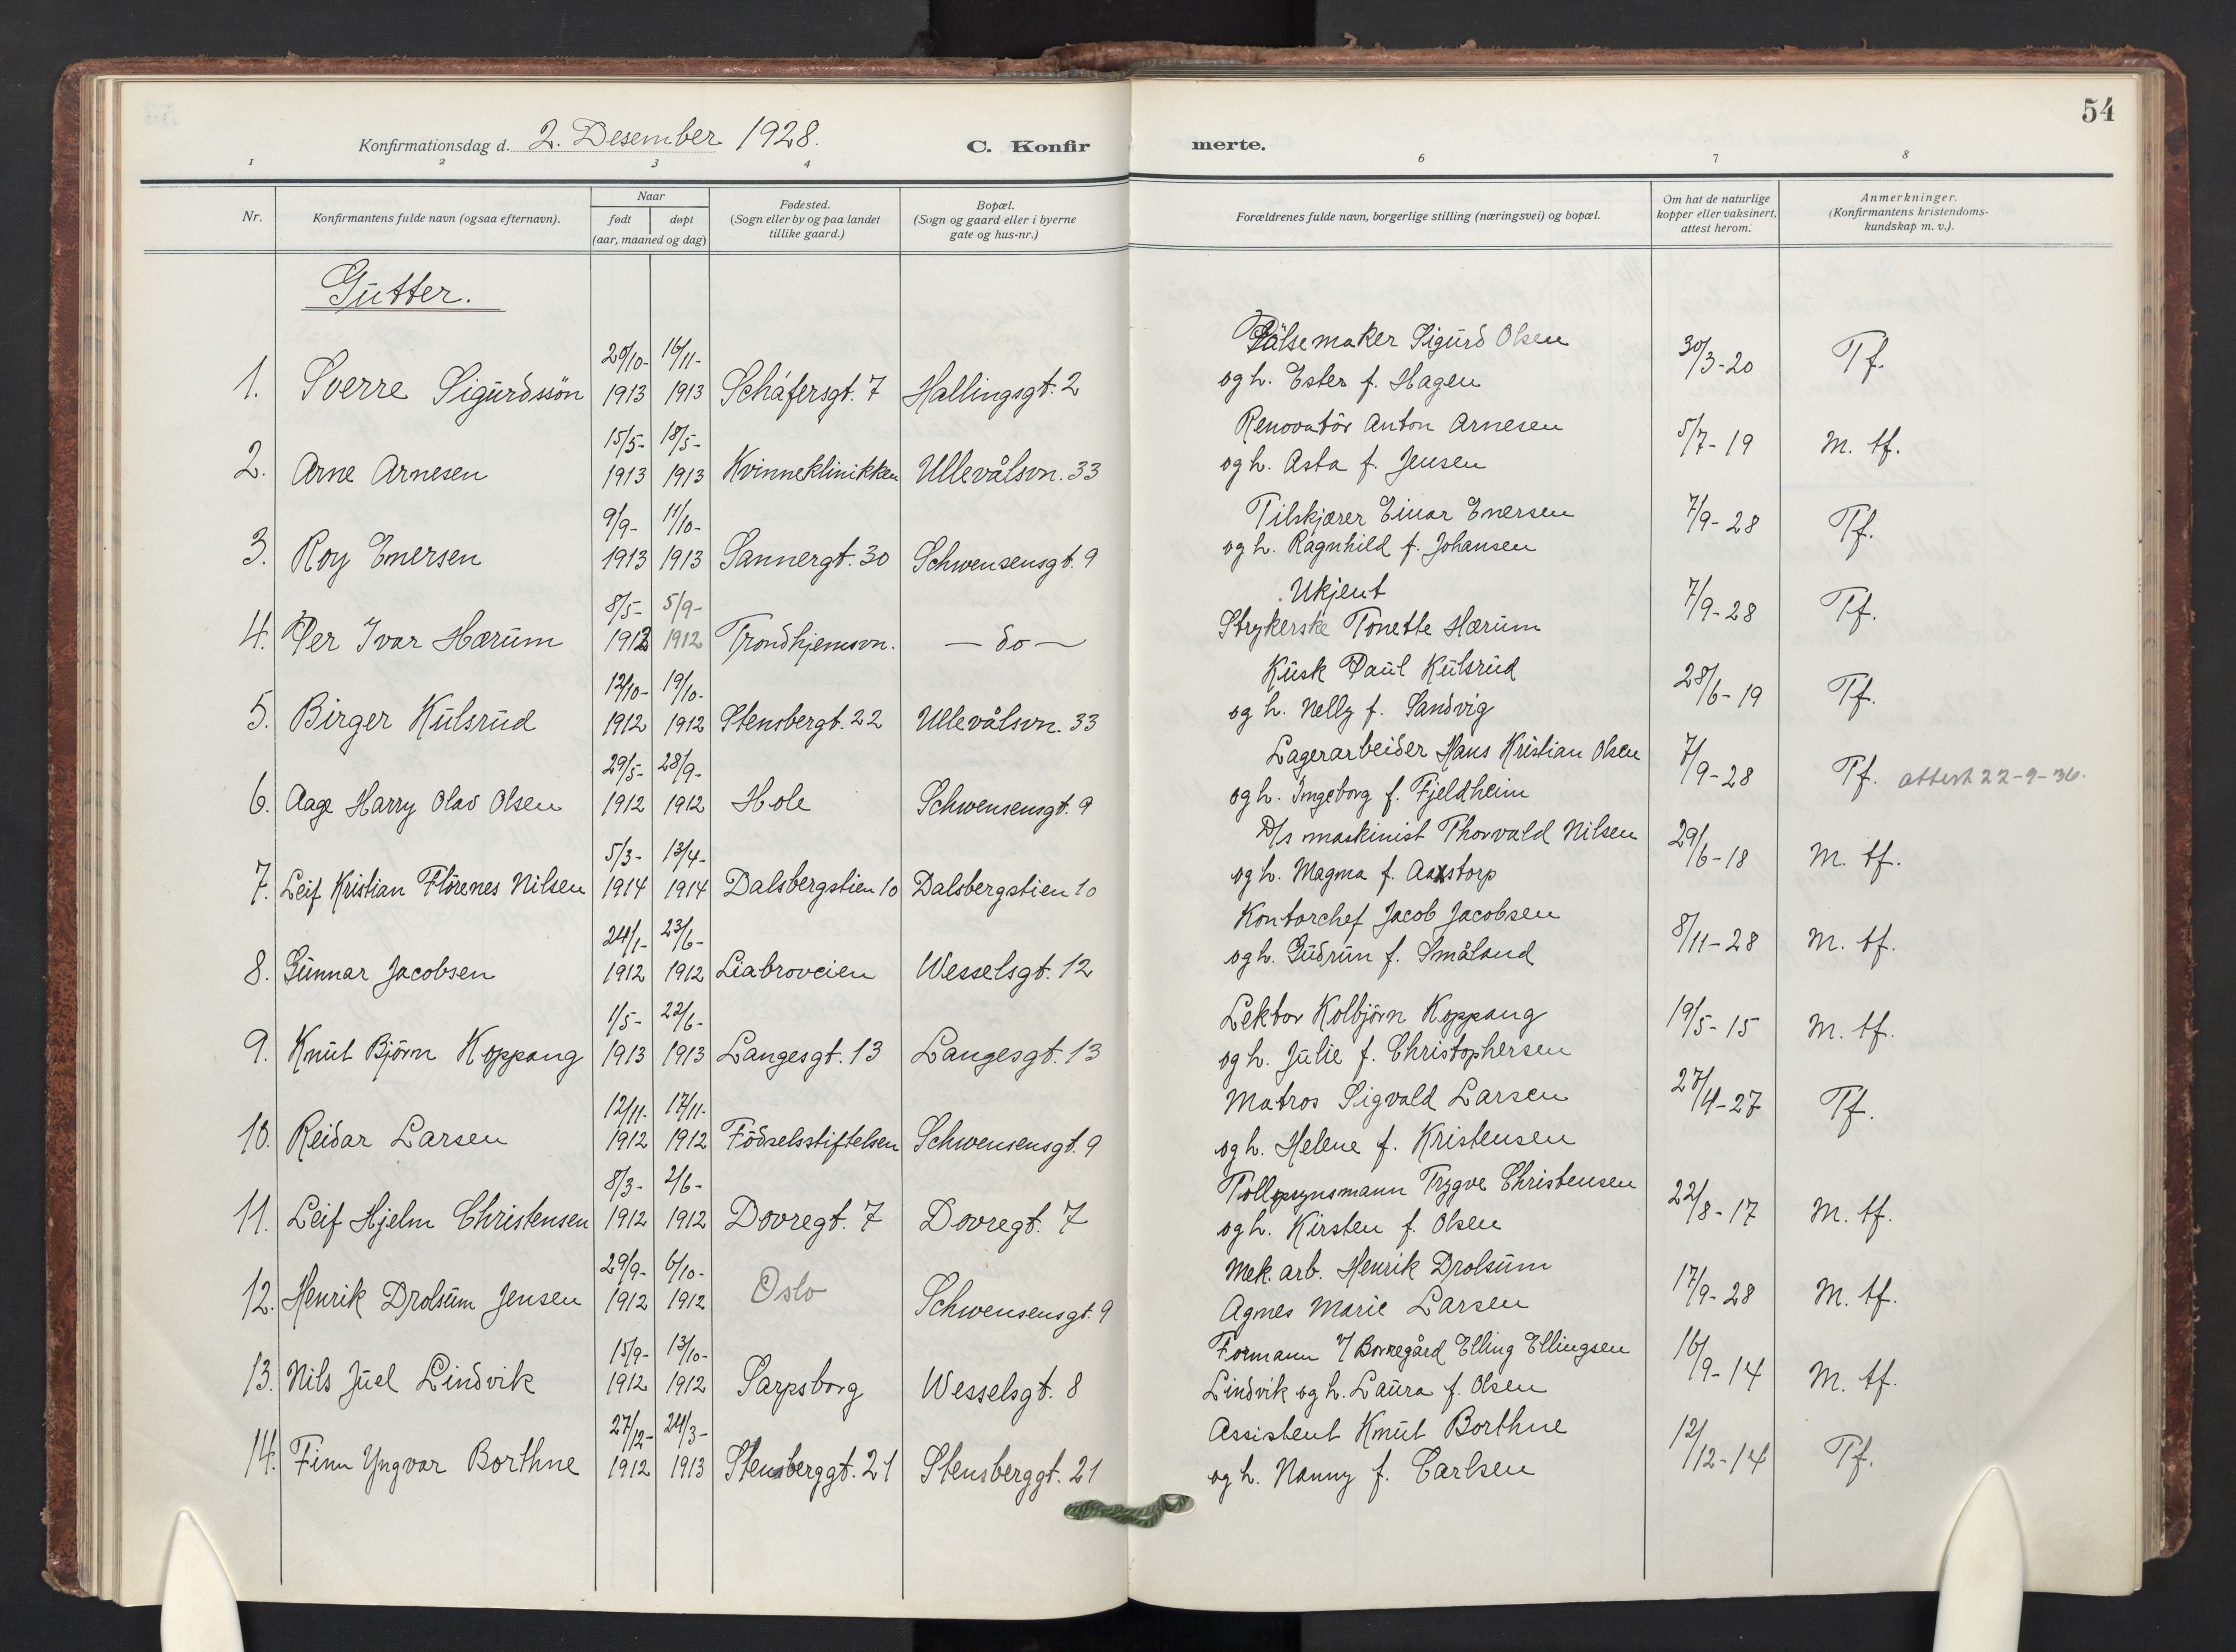 54
Konfirmationsdag d. 2. Desember 1928.
C. Konfirmerte.
1 2 3 4 6 7 8
Nr.
Konfirmantens fulde navn (ogsaa efternavn).
Naar
født døpt
(aar, maaned og dag)
Fødested.
(Sogn eller by og paa landet
tillike gaard.)
Bopæl.
(Sogn og gaard eller i byerne
gate og hus-nr.)
Forældrenes fulde navn, borgerlige stilling (næringsvei) og bopæl.
Om hat de naturlige
kopper eller vaksinert,
attest herom.
Anmerkninger.
(Konfirmantens kristendoms-
kundskap m. v.).
Gutter.
20/10- 16/11- Pölsemaker Sigurd Olsen 30/3-20 Tf.
1. Sverre Sigurdssön 1913 1913 Schäfersgt. 7 Hallingsgt. 2 og h. Ester f. Hagen
15/5- 18/5- Renovatör Anton Arnesen 5/7-19 M. tf.
2. Arne Arnesen 1913 1913 Kvinneklinikken Ullevålsvn. 33 og h. Asta f. Jensen
9/9- 11/10- Tilskjærer Einar Enersen 7/9-28 Tf.
3. Roy Enersen 1913 1913 Sannergt. 30 Schwensensgt. 9 og h. Ragnhild f. Johansen
8/5- 5/9- Ukjent 7/9-28 Tf.
4. Per Ivar Hærum 1912 1912 Trondhjemsvn. — do — Strykerske Tonette Hærum
12/10- 19/10- Kusk Paul Kulsrud 28/6-19 Tf.
5. Birger Kulsrud 1912 1912 Stensbergt. 22 Ullevålsvn. 33 og h. Nelly f. Sandvig
29/5- 28/9- Lagerarbeider Hans Kristian Olsen 7/9-28 Tf. attest 22-9-36.
6. Aage Harry Olav Olsen 1912 1912 Hole Schwensensgt. 9 og h. Ingeborg f. Fjeldheim
5/3- 13/4- D/s maskinist Thorvald Nilsen 29/6-18 M. tf.
7. Leif Kristian Flörenes Nilsen 1914 1914 Dalsbergstien 10 Dalsbergstien 10 og h. Magna f. Aaxstorp
24/1- 23/6- Kontorchef Jacob Jacobsen 8/11-28 M. tf.
8. Gunnar Jacobsen 1912 1912 Liabroveien Wesselsgt. 12 og h. Gudrun f. Småland
1/5- 22/6- Lektor Kolbjörn Koppang 19/5-15 M. tf.
9. Knut Björn Koppang 1913 1913 Langesgt. 13 Langesgt. 13 og h. Julie f. Christophersen
12/11- 17/11- Matros Sigvald Larsen 27/4-27 Tf.
10. Reidar Larsen 1912 1912 Födselsstiftelsen Schwensensgt. 9 og h. Helene f. Kristensen
8/3- 2/6- Tollopsynsmann Trygve Christensen 22/8-17 M. tf.
11. Leif Hjelm Christensen 1912 1912 Dovregt. 7 Dovregt. 7 og h. Kirsten f. Olsen
29/9- 6/10- Mek. arb. Henrik Drolsum 17/9-28 M. tf.
12. Henrik Drolsum Jensen 1912 1912 Oslo Schwensensgt. 9 Agnes Marie Larsen
15/9- 13/10- Formann v/ Borregård Elling Ellingsen 16/9-14 M. tf.
13. Nils Juel Lindvik 1912 1912 Sarpsborg Wesselsgt. 8 Lindvik og h. Laura f. Olsen
27/12- 24/3- Assistent Knut Borthne 12/12-14 Tf.
14. Finn Yngvar Borthne 1912 1913 Stensberggt. 21 Stensberggt. 21 og h. Nanny f. Carlsen